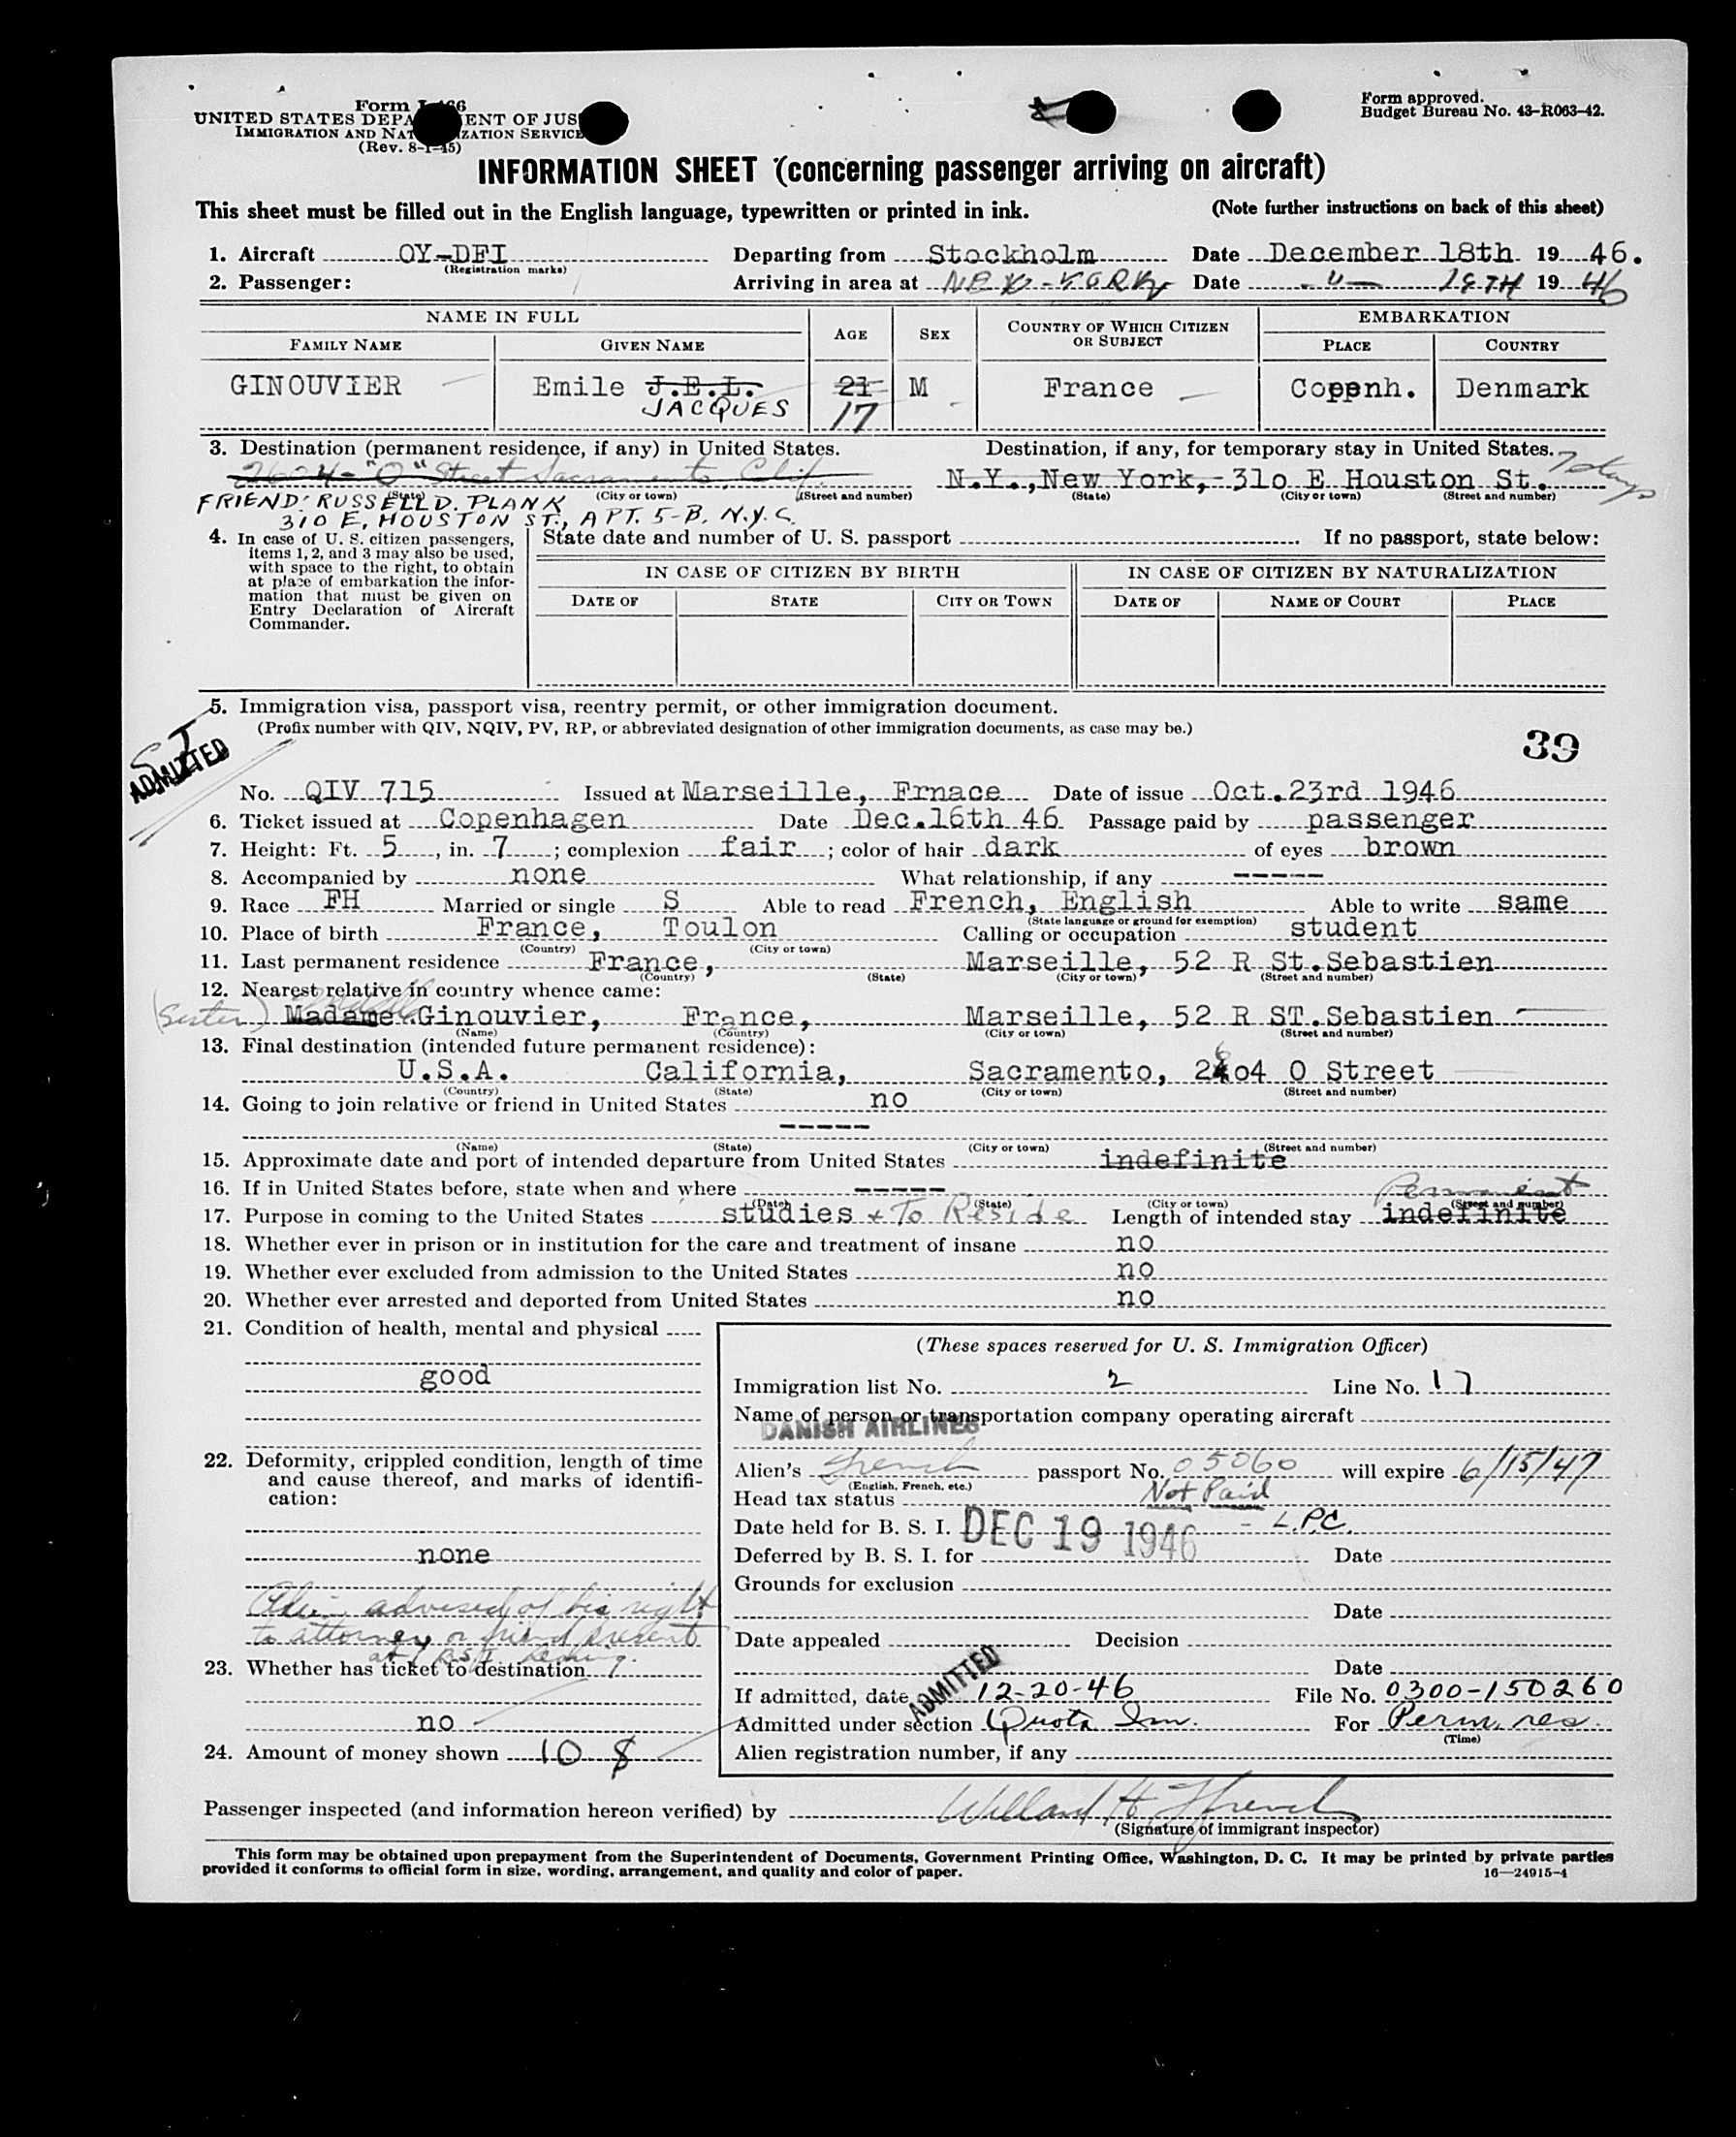 Form I-466
UNITED STATES DEPA ENT OF JUS
IMMIGRATION AND NAT ZATION SERVICE
(Rev. 8-1-45)
Form approved.
Budget Bureau No. 43-R063-42.
INFORMATION SHEET (concerning passenger arriving on aircraft)
This sheet must be filled out in the English language, typewritten or printed in ink. (Note further instructions on back of this sheet)
1. Aircraft OY-DFI Departing from Stockholm Date December 18th 19 46.
(Registration marks)
2. Passenger: Arriving in area at NEW-YORK Date -"- 19TH 19 46
NAME IN FULL AGE SEX COUNTRY OF WHICH CITIZEN OR SUBJECT EMBARKATION
FAMILY NAME GIVEN NAME PLACE COUNTRY
GINOUVIER Emile J.E.L. 21 M France Copenh. Denmark
JACQUES 17
3. Destination (permanent residence, if any) in United States. Destination, if any, for temporary stay in United States.
2604-"O" Street Sacramento, Clif. N.Y.,New York,-31o E Houston St. 7 days
(State) (City or town) (Street and number) (State) (City or town) (Street and number)
FRIEND: RUSSELL D. PLANK
310 E, HOUSTON ST., APT. 5-B, N.Y.C.
4. In case of U. S. citizen passengers, items 1, 2, and 3 may also be used, with space to the right, to obtain at place of embarkation the information that must be given on Entry Declaration of Aircraft Commander.
State date and number of U. S. passport If no passport, state below:
IN CASE OF CITIZEN BY BIRTH IN CASE OF CITIZEN BY NATURALIZATION
DATE OF STATE CITY OR TOWN DATE OF NAME OF COURT PLACE
5. Immigration visa, passport visa, reentry permit, or other immigration document.
(Prefix number with QIV, NQIV, PV, RP, or abbreviated designation of other immigration documents, as case may be.)
SI
ADMITTED
39
No. QIV 715 Issued at Marseille, Frnace Date of issue Oct.23rd 1946
6. Ticket issued at Copenhagen Date Dec.16th 46 Passage paid by passenger
7. Height: Ft. 5, in. 7; complexion fair; color of hair dark of eyes brown
8. Accompanied by none What relationship, if any -----
9. Race FH Married or single S Able to read French, English Able to write same
(State language or ground for exemption)
10. Place of birth France, Toulon Calling or occupation student
(Country) (City or town)
11. Last permanent residence France, Marseille, 52 R St.Sebastien
(Country) (State) (City or town) (Street and number)
12. Nearest relative in country whence came:
(Sister) Madame Ginouvier, France, Marseille, 52 R ST.Sebastien
(Name) (Country) (City or town) (Street and number)
13. Final destination (intended future permanent residence):
U.S.A. California, Sacramento, 26o4 O Street
(Country) (State) (City or town) (Street and number)
14. Going to join relative or friend in United States no
-----
(Name) (State) (City or town) (Street and number)
15. Approximate date and port of intended departure from United States indefinite
16. If in United States before, state when and where -----
(Date) (State) (City or town) (Street and number)
Permanent
17. Purpose in coming to the United States studies + To Reside Length of intended stay indefinite
18. Whether ever in prison or in institution for the care and treatment of insane no
19. Whether ever excluded from admission to the United States no
20. Whether ever arrested and deported from United States no
21. Condition of health, mental and physical
good
22. Deformity, crippled condition, length of time and cause thereof, and marks of identification:
none
Alien advised of his right
to attorney or friend present
at BSI hearing.
23. Whether has ticket to destination
no
24. Amount of money shown 10 $
(These spaces reserved for U. S. Immigration Officer)
Immigration list No. 2 Line No. 17
Name of person or transportation company operating aircraft
DANISH AIRLINES
Alien's French passport No. 05060 will expire 6/15/47
(English, French, etc.)
Head tax status Not Paid
Date held for B. S. I. DEC 19 1946 - L.P.C.
Deferred by B. S. I. for Date
Grounds for exclusion
Date
Date appealed Decision
Date
If admitted, date ADMITTED 12-20-46 File No. 0300-150260
Admitted under section Quota Im. For Perm. res.
(Time)
Alien registration number, if any
Passenger inspected (and information hereon verified) by Willard H French
(Signature of immigrant inspector)
This form may be obtained upon prepayment from the Superintendent of Documents, Government Printing Office, Washington, D. C. It may be printed by private parties
provided it conforms to official form in size, wording, arrangement, and quality and color of paper.
16—24915-4